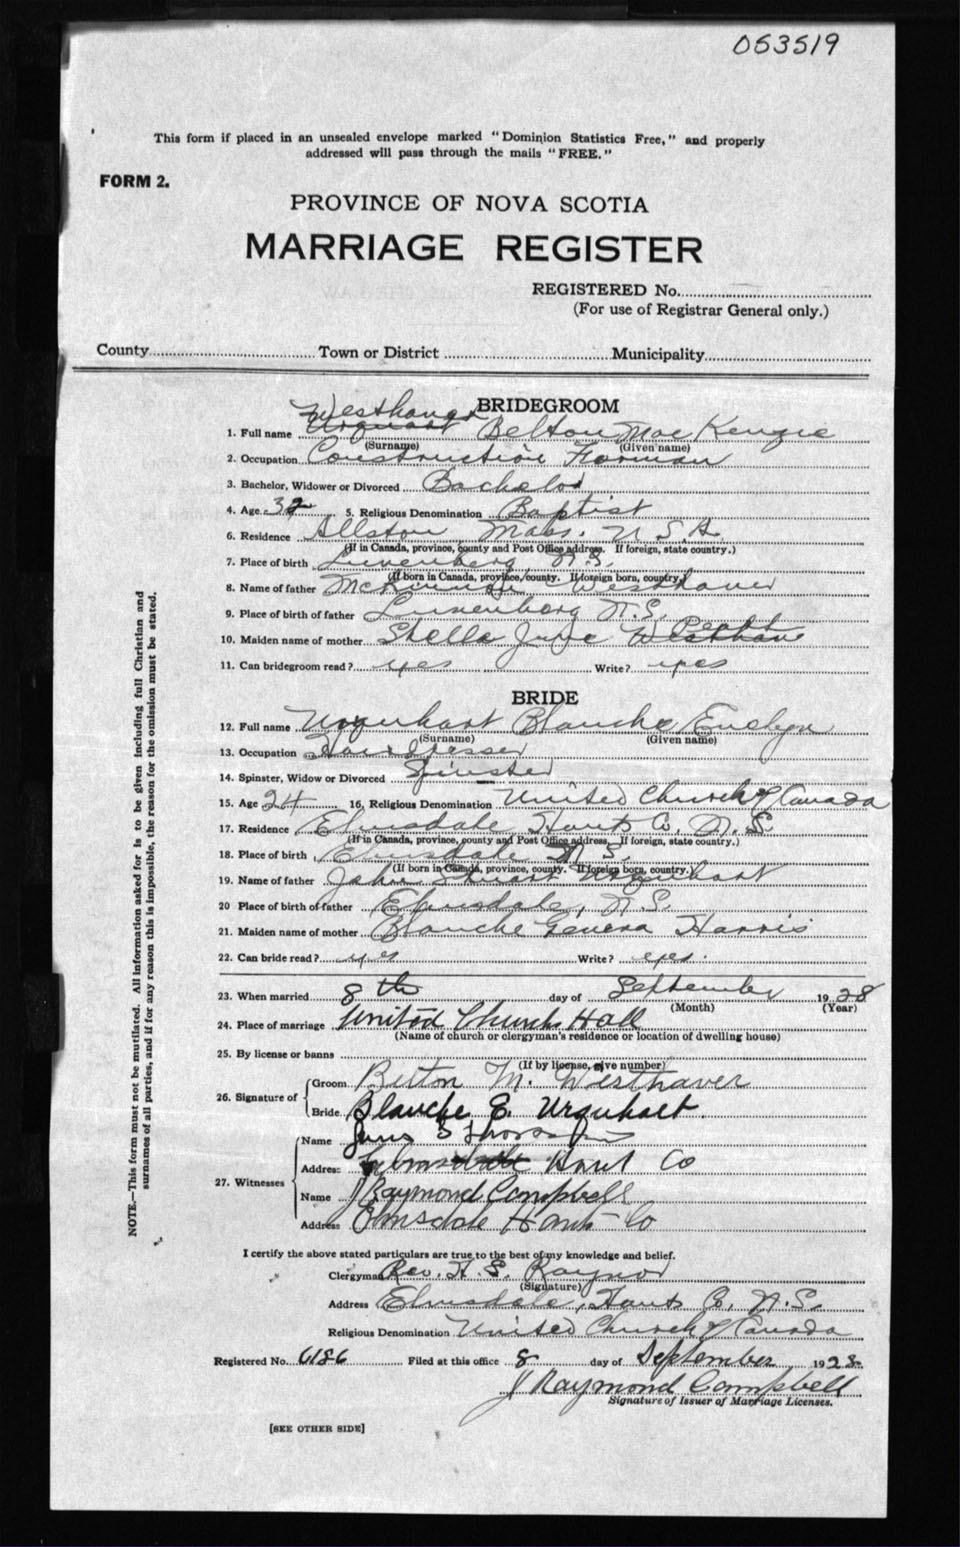 053519
This form if placed in an unsealed envelope marked "Dominion Statistics Free," and properly
addressed will pass through the mails "FREE."
FORM 2.
PROVINCE OF NOVA SCOTIA
MARRIAGE REGISTER
REGISTERED No.
(For use of Registrar General only.)
County Town or District Municipality
BRIDEGROOM
Westhaver
1. Full name Urquhart Belton MacKenzie
(Surname) (Given name)
2. Occupation Construction Forman
3. Bachelor, Widower or Divorced Bachelor
4. Age 32 5. Religious Denomination Baptist
6. Residence Allston Mass. U.S.A.
(If in Canada, province, county and Post Office address. If foreign, state country.)
7. Place of birth Lunenberg N.S.
(If born in Canada, province, county. If foreign born, country)
8. Name of father Westhaver
9. Place of birth of father Lunenberg N.S.
10. Maiden name of mother Stella June Westhave
11. Can bridegroom read? yes Write? yes
BRIDE
12. Full name Urquhart Blanche Evelyn
(Surname) (Given name)
13. Occupation Hairdresser
14. Spinster, Widow or Divorced Spinster
15. Age 24 16. Religious Denomination United Church of Canada
17. Residence Elmsdale Hants Co. N.S.
(If in Canada, province, county and Post Office address. If foreign, state country.)
18. Place of birth Elmsdale N.S.
(If born in Canada, province, county. If foreign born, country.)
19. Name of father John Stuart Urquhart
20 Place of birth of father Elmsdale, N.S.
21. Maiden name of mother Blanche Geneva Harris
22. Can bride read? yes Write? yes.
23. When married 8th day of September 1928
(Month) (Year)
24. Place of marriage United Church Hall
(Name of church or clergyman's residence or location of dwelling house)
25. By license or banns
(If by license, give number)
26. Signature of Groom Belton M. Westhaver
Bride Blanche E. Urquhart.
27. Witnesses
Name
Address Elmsdale Hant Co
Name J Raymond Campbell
Address Elmsdale Hants Co
I certify the above stated particulars are true to the best of my knowledge and belief.
Clergyman Rev. H. S. Raynor
(Signature)
Address Elmsdale, Hants Co, N.S.
Religious Denomination United Church of Canada
Registered No. 6186 Filed at this office 8 day of September 1928
J Raymond Campbell
Signature of Issuer of Marriage Licenses.
[SEE OTHER SIDE]
NOTE.—This form must not be mutilated. All information asked for is to be given including full Christian and
surnames of all parties, and if for any reason this is impossible, the reason for the omission must be stated.